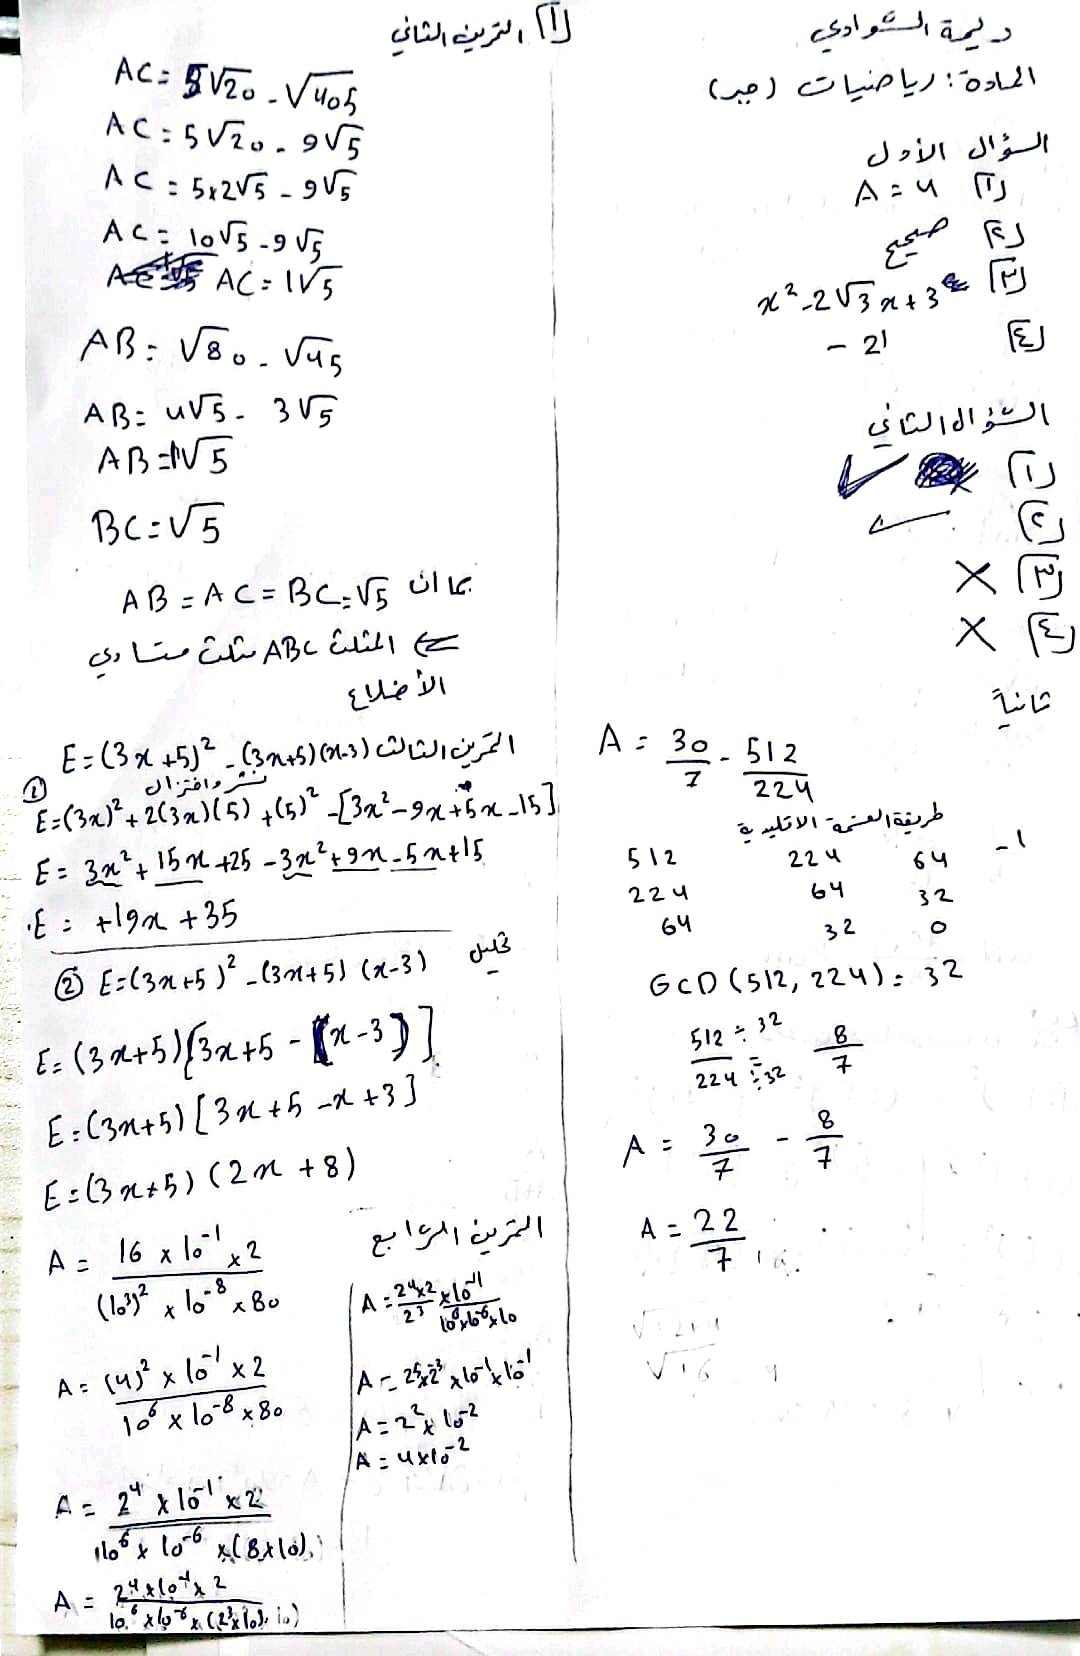 ديمة الشوادي
المادة: رياضيات (جبر)
السؤال الأول
1] A = 4
2] صحيح
3] x² - 2√3 x + 3
4] - 21
السؤال الثاني
1] ✓
2] ✓
3] ✗
4] ✗
ثانياً
A = 30/7 - 512/224
1- طريقة القسمة الاقليدية
512 224 64
224 64 32
64 32 0
GCD (512, 224) = 32
512 ÷ 32 / 224 ÷ 32 = 8/7
A = 30/7 - 8/7
A = 22/7
1] التمرين الثاني
AC = 5√20 - √405
AC = 5√20 - 9√5
AC = 5×2√5 - 9√5
AC = 10√5 - 9√5
AC = 1√5
AB = √80 - √45
AB = 4√5 - 3√5
AB = 1√5
BC = √5
بما ان AB = AC = BC = √5
⇐ المثلث ABC مثلث متساوي
الأضلاع
التمرين الثالث E = (3x+5)² - (3x+5)(x-3)
① نشر واختزال
E = (3x)² + 2(3x)(5) + (5)² - [3x² - 9x + 5x - 15]
E = 3x² + 15x + 25 - 3x² + 9x - 5x + 15
E = +19x + 35
② E = (3x+5)² - (3x+5) (x-3) تحليل
E = (3x+5)[3x+5 - (x-3)]
E = (3x+5) [3x+5 -x +3]
E = (3x+5) (2x + 8)
التمرين الرابع
A = 16 × 10⁻¹ × 2 / (10³)² × 10⁻⁸ × 80
A = (4)² × 10⁻¹ × 2 / 10⁶ × 10⁻⁸ × 80
A = 2⁴ × 10⁻¹ × 2 / 10⁶ × 10⁻⁶ × (8×10)
A = 2⁴ × 10⁻¹ × 2 / 10⁶ × 10⁻⁶ × (2³ × 10)
A = 2⁴×2 / 2³ × 10⁻¹ / 10⁶×10⁻⁶×10
A = 2⁵×2⁻³ × 10⁻¹ × 10⁻¹
A = 2² × 10⁻²
A = 4×10⁻²